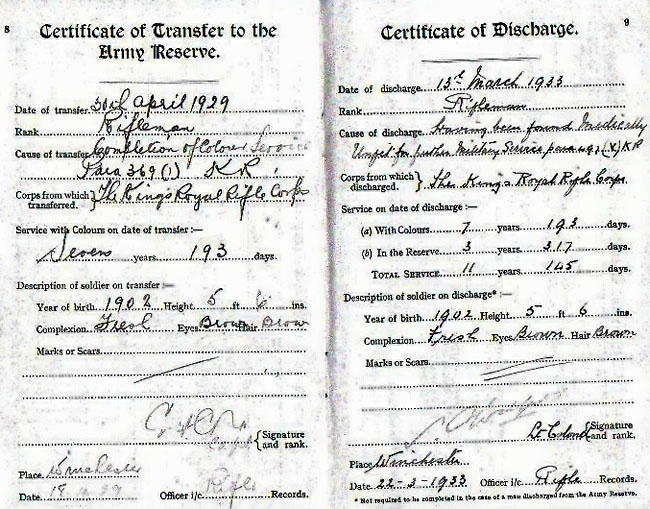 8
Certificate of Transfer to the
Army Reserve.
Date of transfer 30th April 1929
Rank Rifleman
Cause of transfer Completion of Colour Service
Para 369 (1) KR
Corps from which } The King's Royal Rifle Corps
transferred.
Service with Colours on date of transfer :—
Seven years 193 days.
Description of soldier on transfer :—
Year of birth 1902 Height 5 ft 6 ins.
Complexion Fresh Eyes Brown Hair Brown
Marks or Scars
Capt { Signature
and rank.
Place Winchester
Date Officer i/c Rifle Records.
9
Certificate of Discharge.
Date of discharge 13th March 1933
Rank Rifleman
Cause of discharge Having been found Medically
Unfit for further Military Service para KR
Corps from which } The King's Royal Rifle Corps
discharged.
Service on date of discharge :—
(a) With Colours 7 years 193 days.
(b) In the Reserve 3 years 317 days.
TOTAL SERVICE 11 years 145 days.
Description of soldier on discharge* :—
Year of birth 1902 Height 5 ft 6 ins.
Complexion Fresh Eyes Brown Hair Brown
Marks or Scars
Lt Colonel { Signature
and rank.
Place Winchester
Date 22-3-1933 Officer i/c Rifle Records.
* Not required to be completed in the case of a man discharged from the Army Reserve.